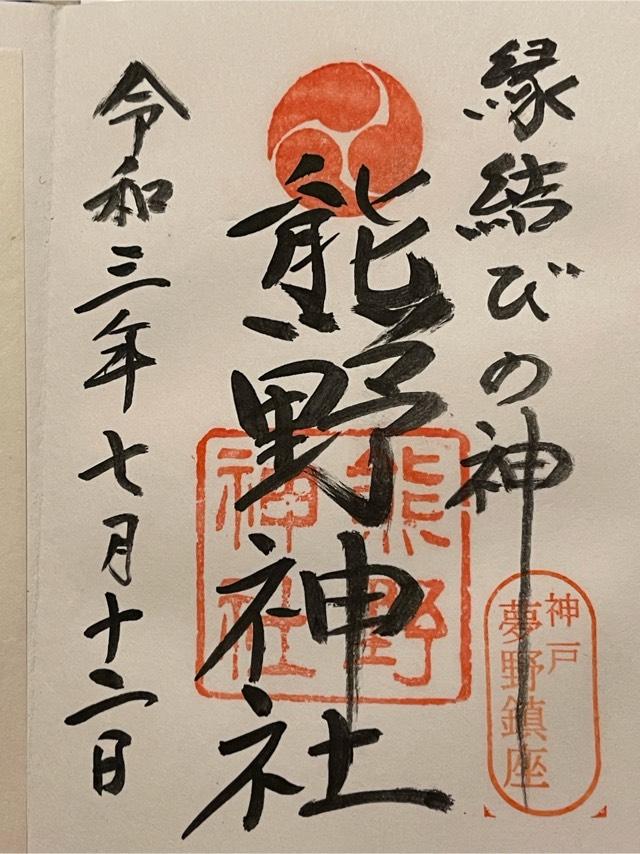 縁結びの神
神戸
夢野鎮座
熊野神社
熊野
神社
令和三年七月十二日